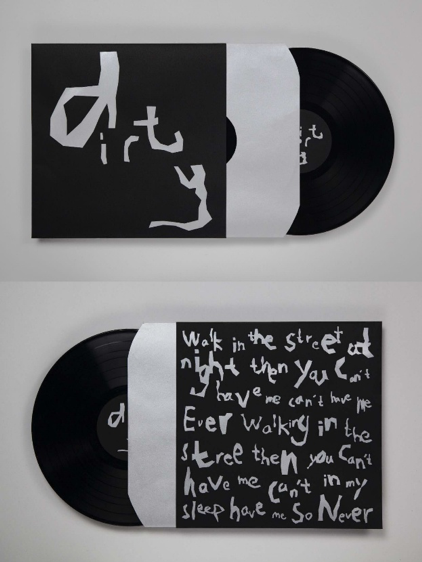 dirty
dirty
Walk in the street at
night then you Can't
have me can't have me
Ever Walking in the
stree then you Can't
have me Can't in my
sleep have me So Never
d